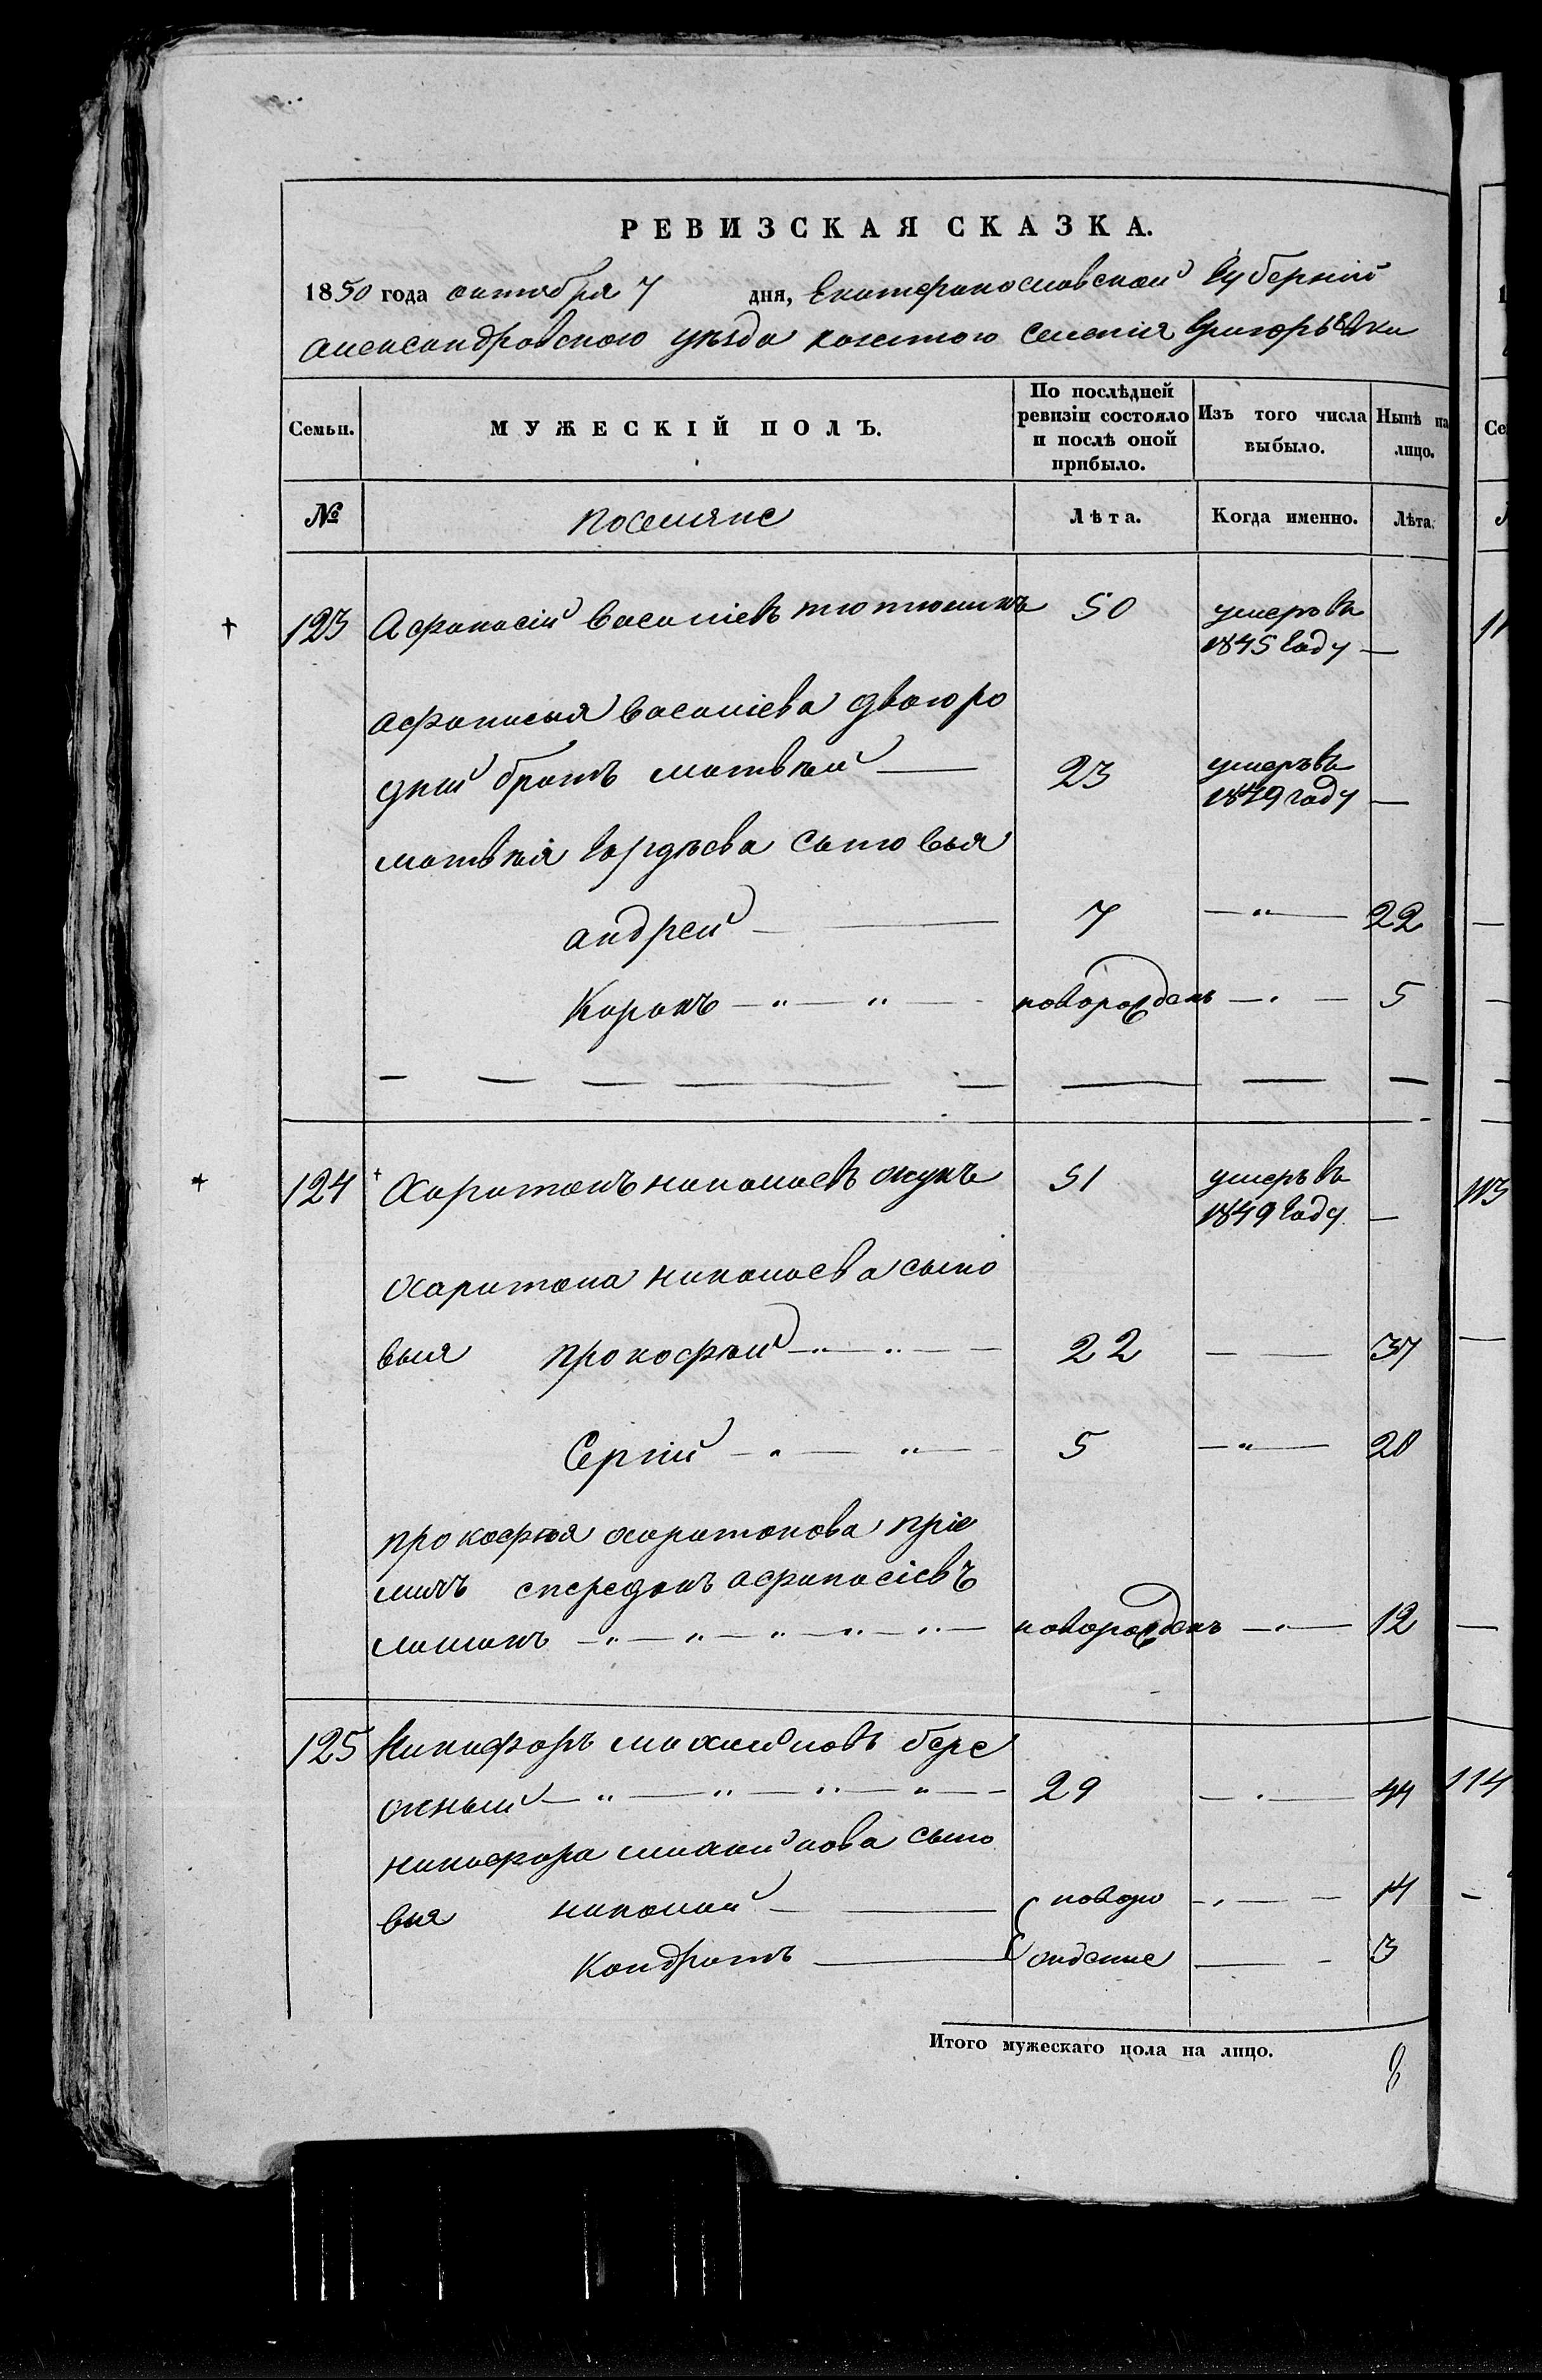 РЕВИЗСКАЯ СКАЗКА.
1850 года октября 7 дня, Екатеринославской Губерніи
Александровского уѣзда казенного селенія Григорьевки
Семьи. МУЖЕСКІЙ ПОЛЪ. По послѣдней ревизіи состояло и послѣ оной прибыло. Изъ того числа выбыло. Нынѣ на лицо.
№ поселяне Лѣта. Когда именно. Лѣта.
123 Афанасій Василіевъ тютюникъ 50 умеръ въ
1845 Году —
афанасія василіева двоюро
дній братъ матвѣй — 23 умеръ въ
1849 году —
матвѣя Гордѣева сыновья
андрей — 7 — " — 22
Карпъ — " — " — новорожденъ — " — 5
124 Харитонъ николаевъ жукъ 51 умеръ въ
1849 Году —
харитона николаева сыно
вья прокофѣй — " — " — 22 — 37
Сергій — " — " — 5 — " — 20
прокофѣя харитонова пріе
мышъ спередонъ афанасіевъ
— " — " — " — " — " — новорожденъ — " — 12
125 Никифоръ михайловъ бере
жный — " — " — " — " — 29 — " — 44
никифора михайлова сыно
вья николай — новоро — " — 14
Кондратъ — жденые — 3
Итого мужескаго пола на лицо. 8
11
113
114